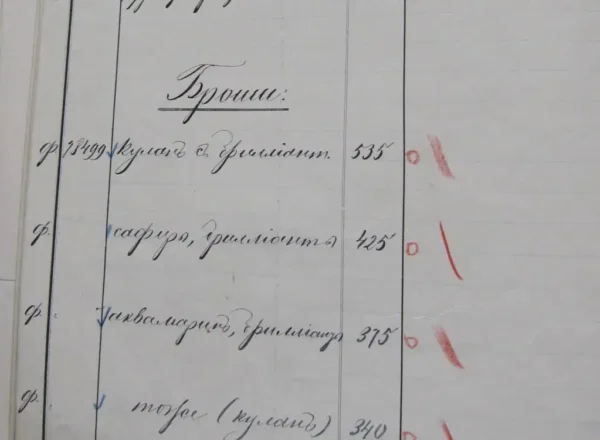 Броши:
ф. 75499 кулонъ съ брилліант. 535 0
ф. сафиръ, брилліанты 425 0
ф. аквамаринъ, брилліанты 375 0
ф. тоже (кулонъ) 340